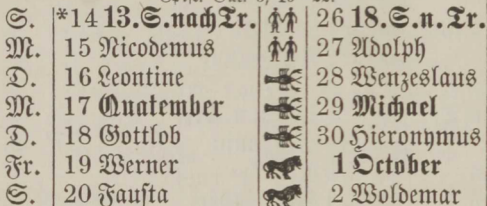 S. *14 13.S.nachTr. 26 18.S.n.Tr.
M. 15 Nicodemus 27 Adolph
D. 16 Leontine 28 Wenzeslaus
M. 17 Quatember 29 Michael
D. 18 Gottlob 30 Hieronymus
Fr. 19 Werner 1 October
S. 20 Fausta 2 Woldemar